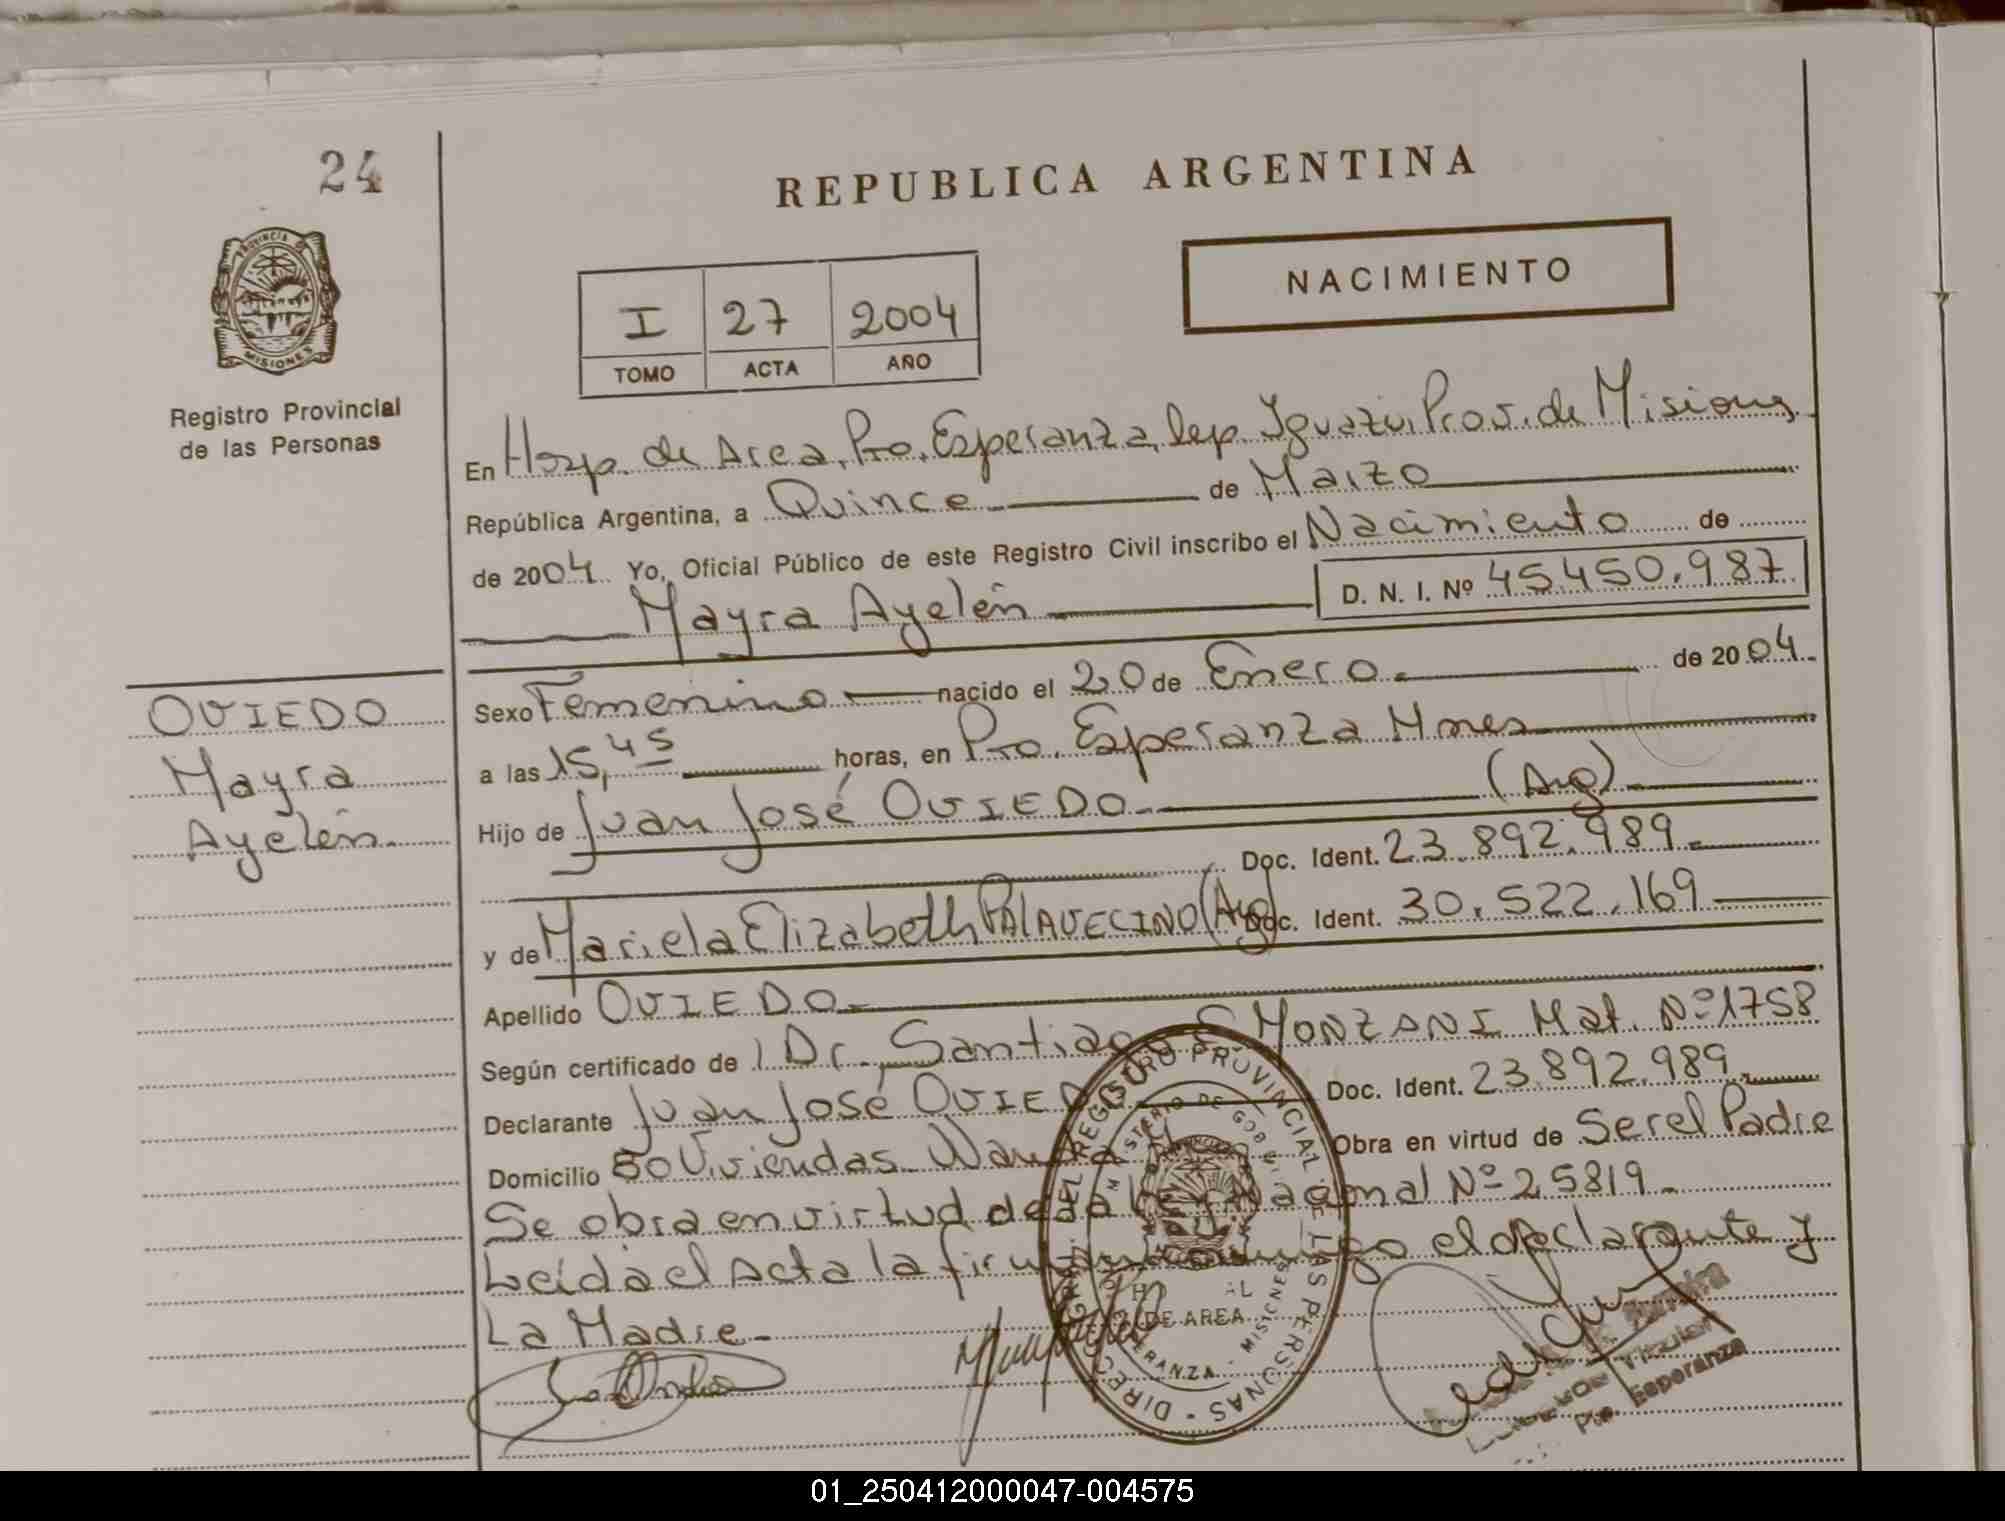 24
REPUBLICA ARGENTINA
PROVINCIA DE
MISIONES
Registro Provincial
de las Personas
NACIMIENTO
I 27 2004
TOMO ACTA AÑO
En Hosp. de Area, Pto. Esperanza, Dep. Iguazú, Prov. de Misiones
República Argentina, a Quince de Marzo
de 2004 Yo, Oficial Público de este Registro Civil inscribo el Nacimiento de
Mayra Ayelén D. N. I. Nº 45.450.987
OVIEDO
Mayra
Ayelén.
Sexo Femenino nacido el 20 de Enero. de 2004.
a las 15,45 horas, en Pto. Esperanza Mnes
Hijo de Juan José OVIEDO (Arg)
Doc. Ident. 23.892.989
y de Mariela Elizabeth PALAVECINO (Arg) Doc. Ident. 30.522.169
Apellido OVIEDO
Según certificado de Dr. Santiago MONZANI Mat. Nº 1758
Declarante Juan José OVIEDO Doc. Ident. 23.892.989
Domicilio 50 Viviendas Wanda Obra en virtud de Ser el Padre
Se obra en virtud de la Ley Nacional Nº 25819
Leída el Acta la firman conmigo el declarante y
La Madre
DIREC. GRAL. DEL REGISTRO PROVINCIAL DE LAS PERSONAS
DE AREA
MISIONES
Pto. Esperanza
01_250412000047-004575